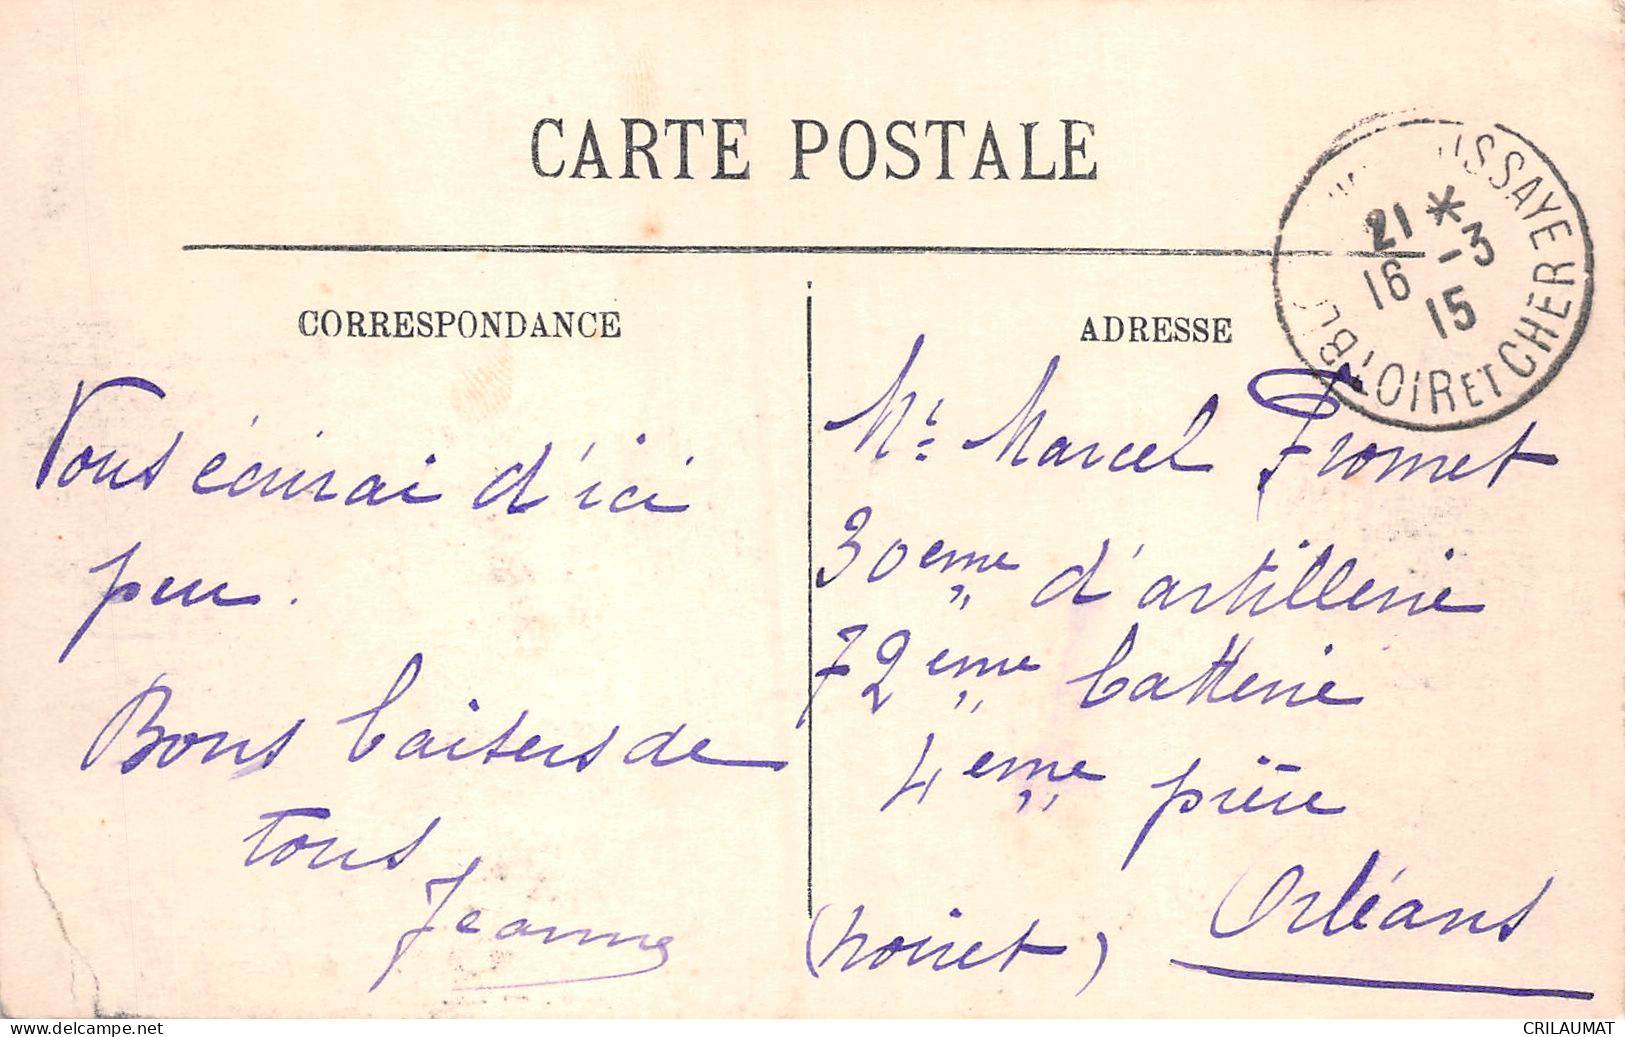 CARTE POSTALE
USSAYE
LOIR ET CHER
21 *
16 -3
15
CORRESPONDANCE
Vous écrirai d'ici
peu.
Bons baisers de
tous
Jeanne
ADRESSE
Mr. Marcel Fromet
30eme d'artillerie
72eme batterie
4eme pièce
Orléans
(Loiret)
CRILAUMAT